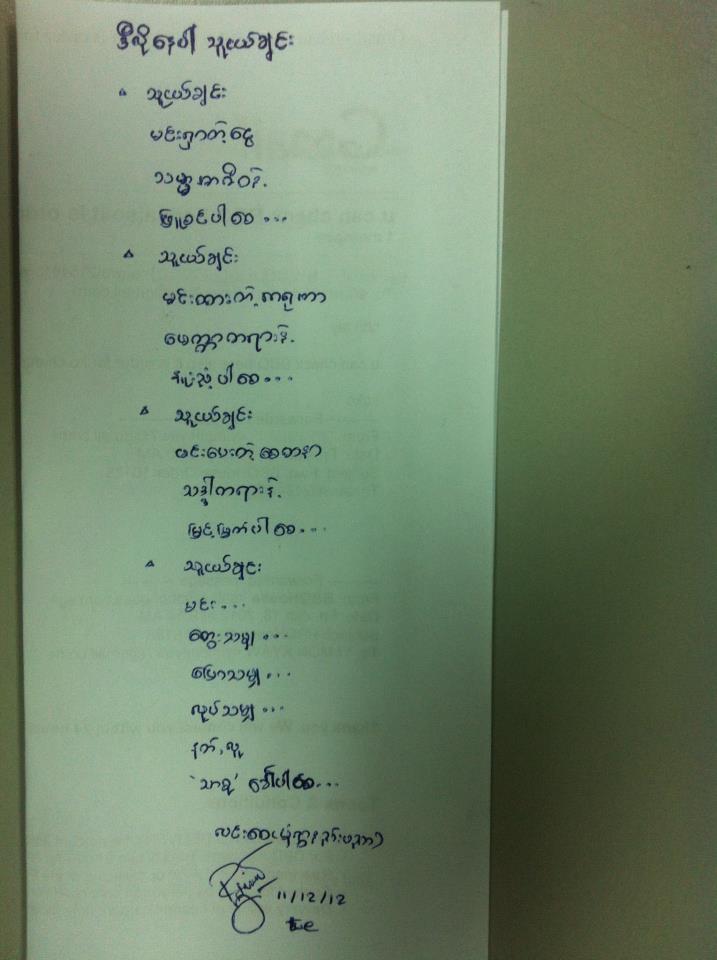 ဒီလိုနေပါ သူငယ်ချင်း
သူငယ်ချင်း
မင်းရှာတဲ့ငွေ
သမ္မာအာဇီဝနဲ့
ဖြူစင်ပါစေ...
သူငယ်ချင်း
မင်းထားတဲ့ ကရုဏာ
မေတ္တာတရားနဲ့
နှံ့ပါစေ...
သူငယ်ချင်း
မင်းပေးတဲ့ စေတနာ
သဒ္ဓါတရားနဲ့
မြင့်မြတ်ပါစေ...
သူငယ်ချင်း
မင်း...
တွေးသမျှ...
ပြောသမျှ...
လုပ်သမျှ...
နတ်,လူ
'သာဓု' ခေါ်ပါစေ...
11/12/12